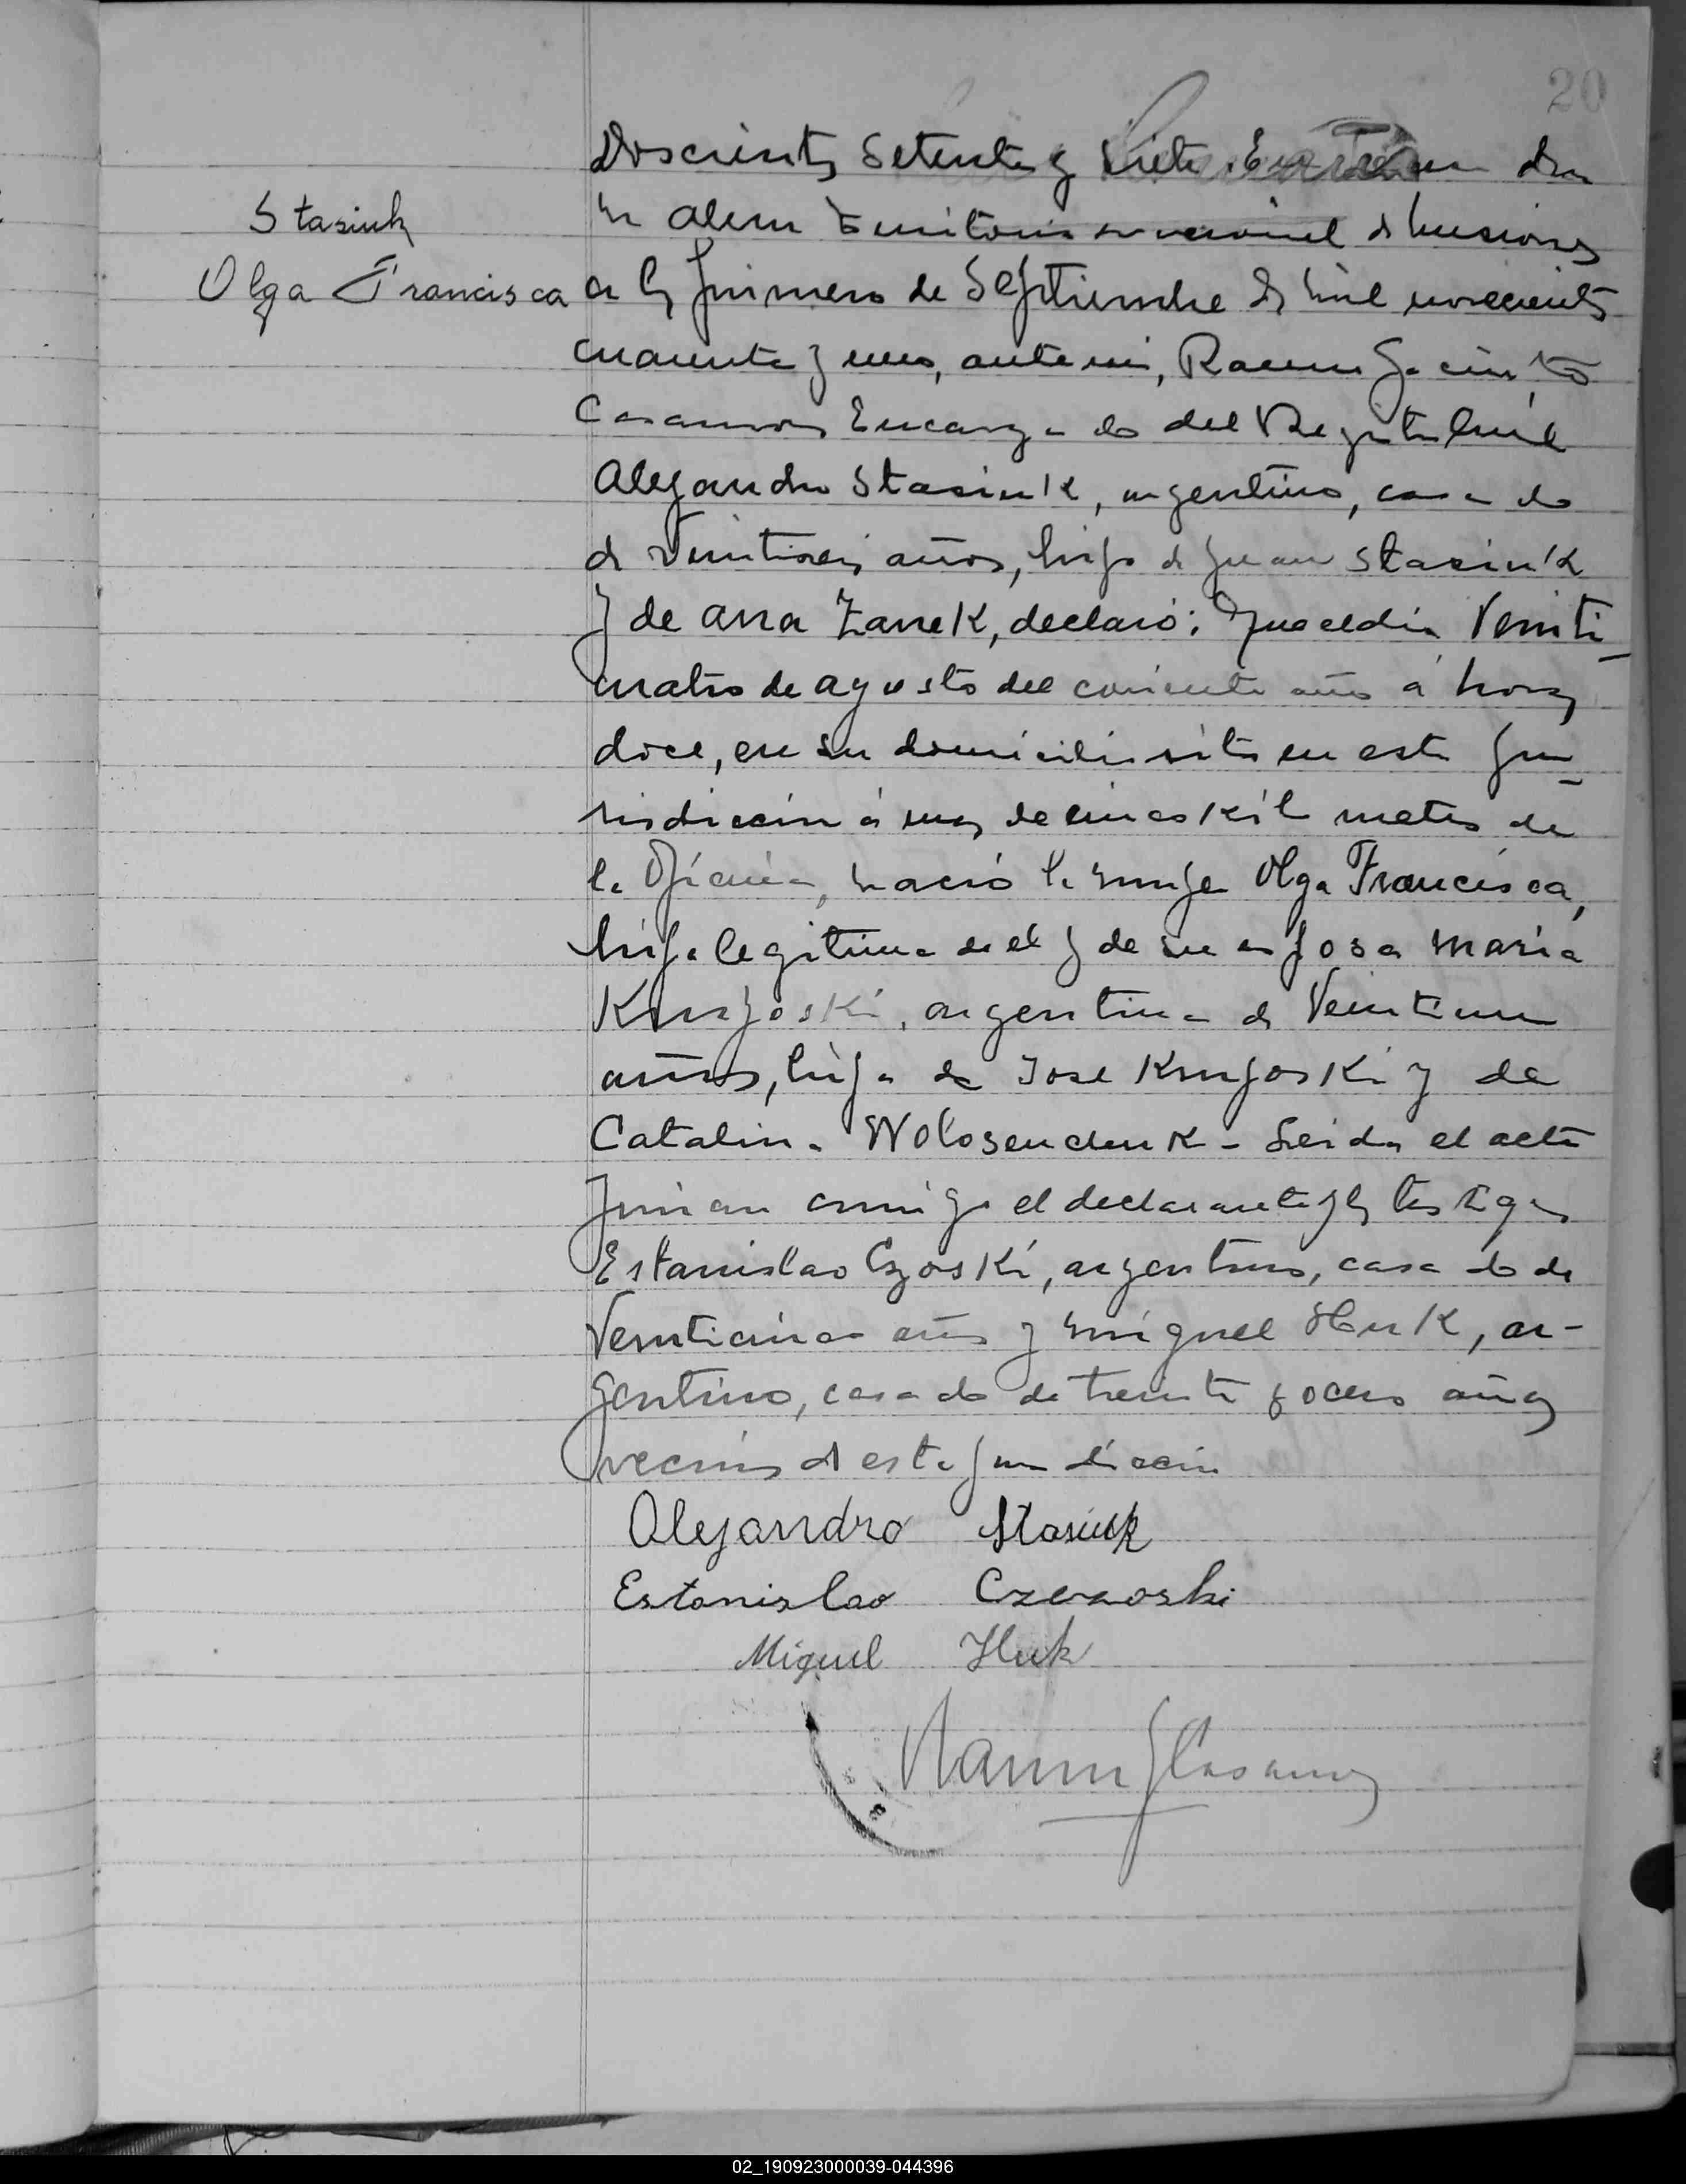 20
Doscientos Setenta y Siete. En Lean dro
N Alem Territorio nacional de Misiones
Stasiuk
Olga Francisca
a los primero de Septiembre de mil novecientos
cuarenta y uno, ante mi, Ramon Jacinto
Casamos Encargado del Registro Civil
Alejandro Stasiuk, argentino, casado
de Veintiseis años, hijo de Juan Stasiuk
y de Ana Zanek, declaró: Que el dia Veinti
cuatro de agosto del corriente año á horas
doce, en su domicilio sito en esta ju-
risdicción á mas de cinco kilometros de
la Oficina, nació la mujer Olga Francisca,
hija legitima de el y de su esposa Maria
argentina de Veintiun
años, hija de Jose y de
Catalina Leida el acta
firman conmigo el declarante y los testigos
Estanislao Czoski, argentino, casado de
Veinticinco años y Miguel Huk, ar-
gentino, casado de treinta y ocho años
vecinos de esta jurisdicción
Alejandro Stasiuk
Estanislao
Miguel Huk
Ramon J Casamos
02_190923000039-044396